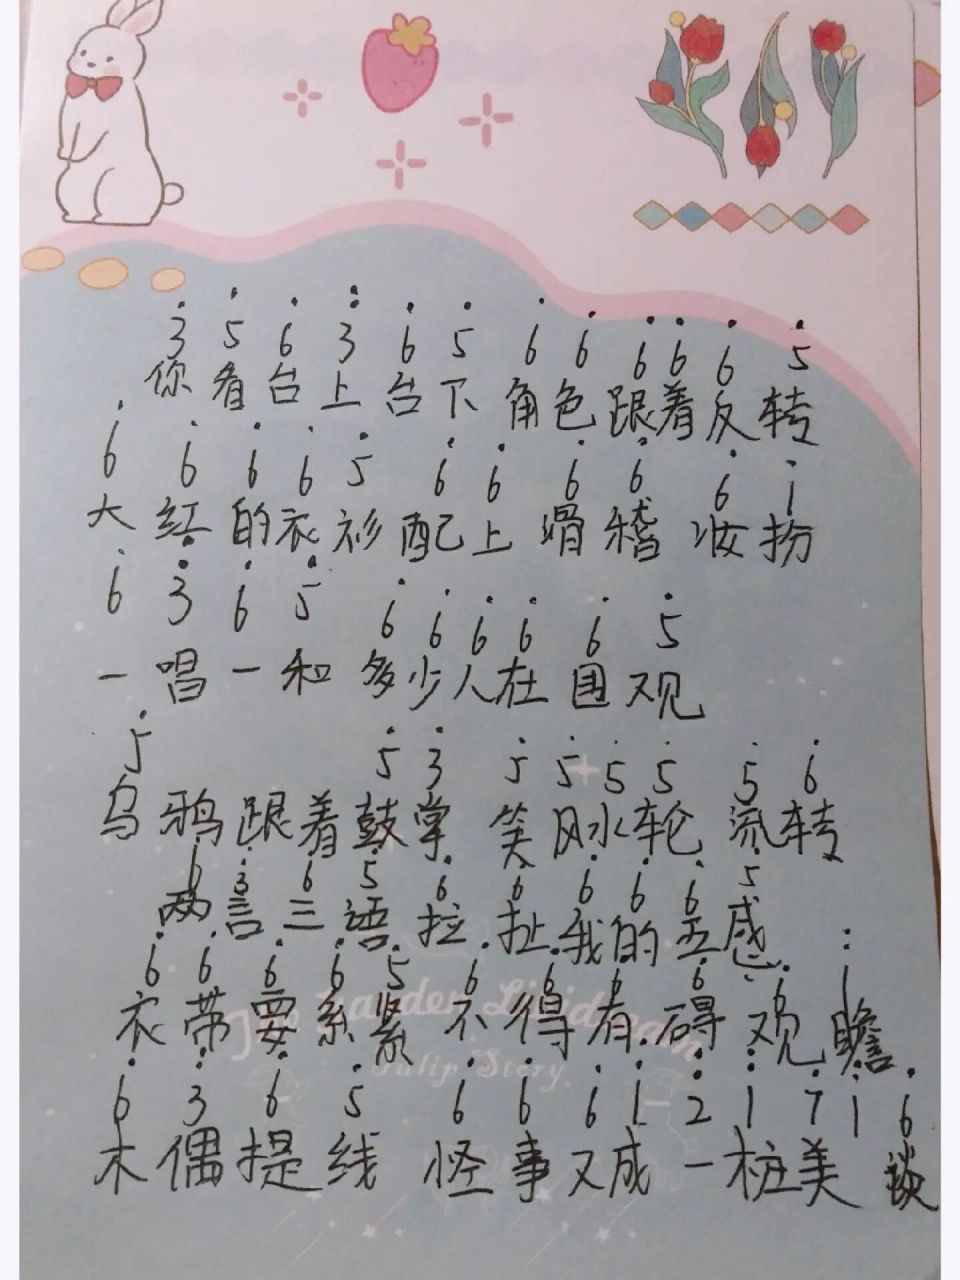 3 5 6 3 6 5 6 6 6 6 6 5
你看台上台下 角色跟着反转
6 6 6 6 5 6 6 6 6 6 1
大红的衣衫配上滑稽 妆扮
6 3 6 5 6 6 6 6 6 5
一唱一和 多少人在围观
5 5 3 5 5 5 5 5 6
乌鸦跟着鼓掌 笑风水轮流转
6 3 6 5 6 6 6 6 6 5
两言三语拉扯我的五感
6 6 6 6 5 6 6 6 6 6 1
衣带要系紧 不得有碍观瞻
The Garden
Tulip Story
6 3 6 5 6 6 6 1 2 1 7 1 6
木偶提线 怪事又成一桩美谈